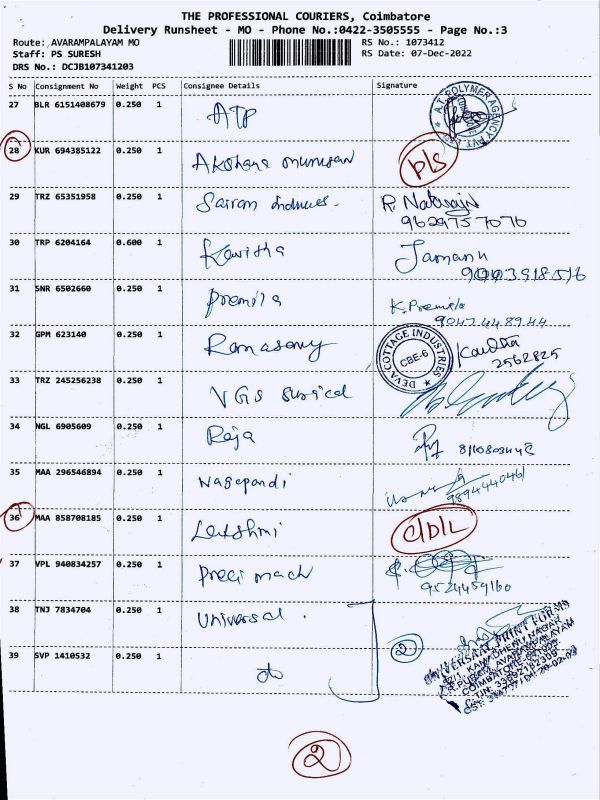 THE PROFESSIONAL COURIERS, Coimbatore
Delivery Runsheet - MO - Phone No.:0422-3505555 - Page No.:3
Route: AVARAMPALAYAM MO RS No.: 1073412
Staff: PS SURESH RS Date: 07-Dec-2022
DRS No.: DCJB107341203
S No Consignment No Weight PCS Consignee Details Signature
27 BLR 6151408679 0.250 1 ATP A.T. POLYMER AGENCY PVT.
28 KUR 694385122 0.250 1 Akshaya murugan p/s
29 TRZ 65351958 0.250 1 Sairam R. Natarajn
9629757076
30 TRP 6204164 0.600 1 Kavitha
9003918516
31 SNR 6502660 0.250 1 Premila K. Premila
9047448944
32 GPM 623140 0.250 1 Ramasamy DEVA COTTAGE INDUSTRIES CBE-6 Kavitha
2562825
33 TRZ 245256238 0.250 1 VGS Surgical
34 NGL 6905609 0.250 1 Raja
35 MAA 296546894 0.250 1 Nagapandi
9894440461
36 MAA 858708185 0.250 1 Lakshmi c/p/L
37 VPL 940834257 0.250 1 Preci mach
9524459160
38 TNJ 7834704 0.250 1 Universal 2
UNIVERSAL PRINT FORMS
39 SVP 1410532 0.250 1 do
2